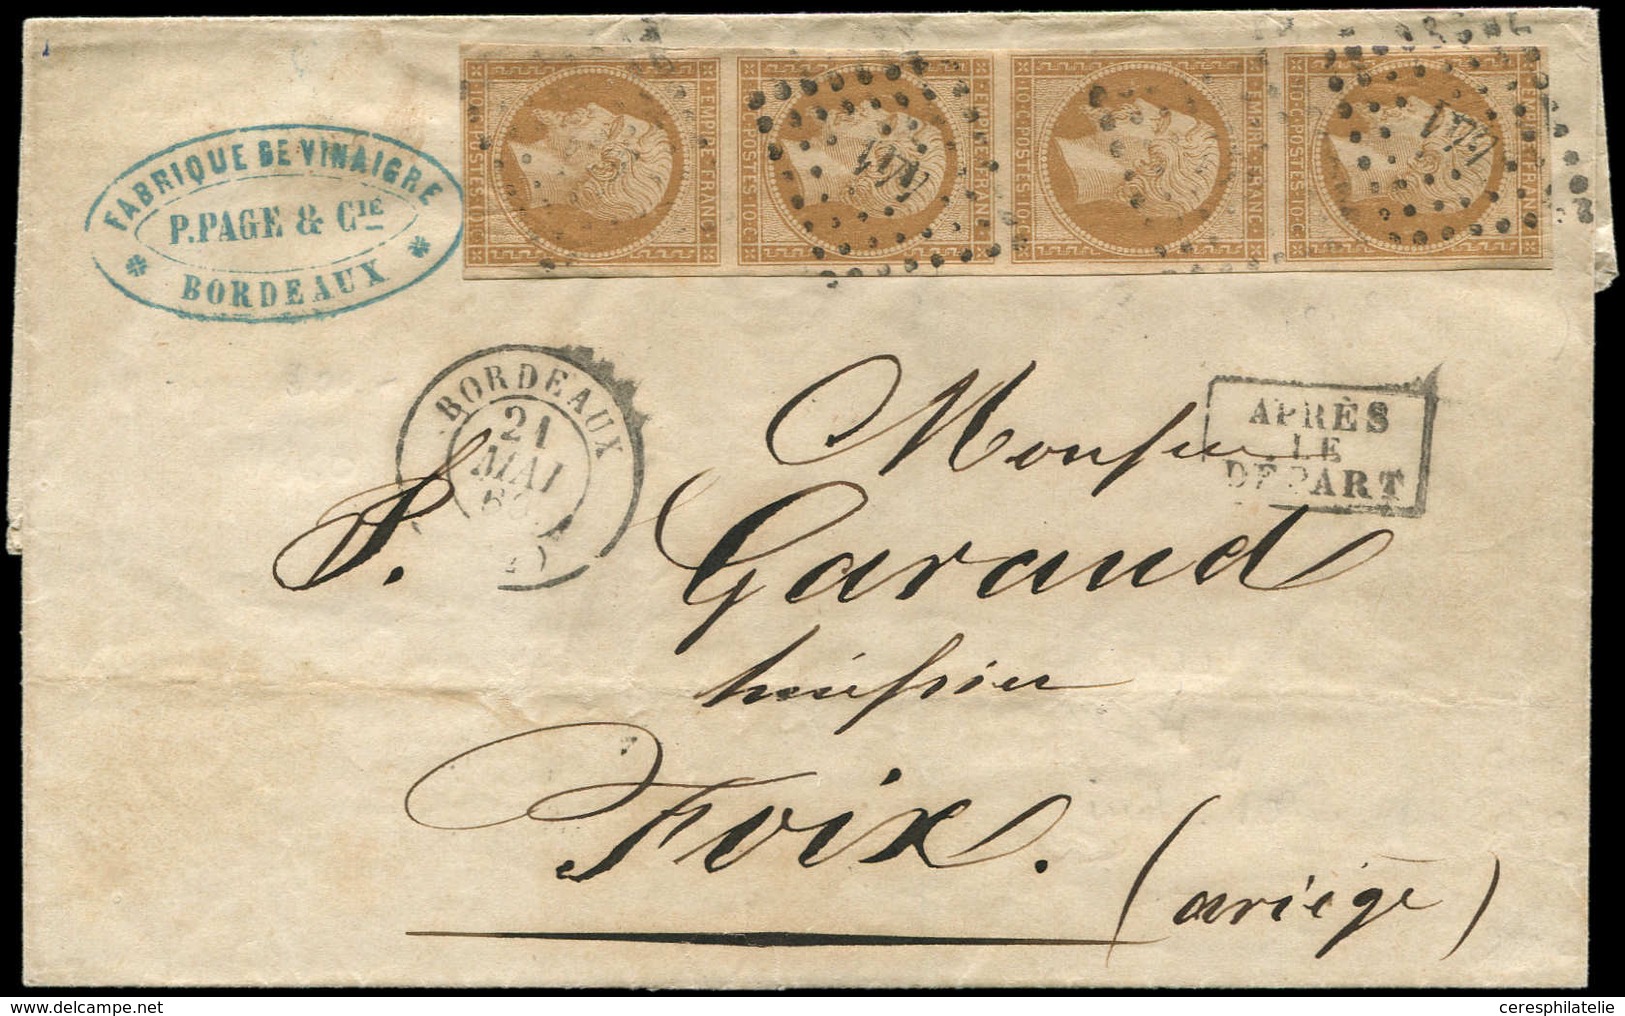 FABRIQUE DE VINAIGRE
P. PAGE & CIE
BORDEAUX
10·C·POSTES·10·C· EMPIRE FRANC·
10·C·POSTES·10·C· EMPIRE FRANC· 441
10·C·POSTES·10·C· EMPIRE FRANC·
10·C·POSTES·10·C· EMPIRE FRANC· 441
BORDEAUX
21
MAI
APRÈS
LE
DÉPART
Monsieur
P. Garaud
huissier
Foix.
(ariège)
delcampe.net
ceresphilatelie